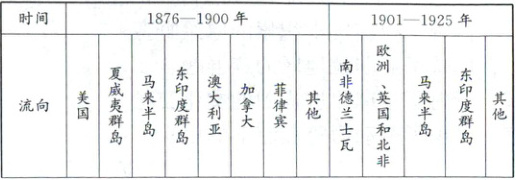 时间 1876—1900 年 1901—1925 年
流向 美国 夏威夷群岛 马来半岛 东印度群岛 澳大利亚 加拿大 菲律宾 其他 南非德兰士瓦 欧洲、英国和北非 马来半岛 东印度群岛 其他